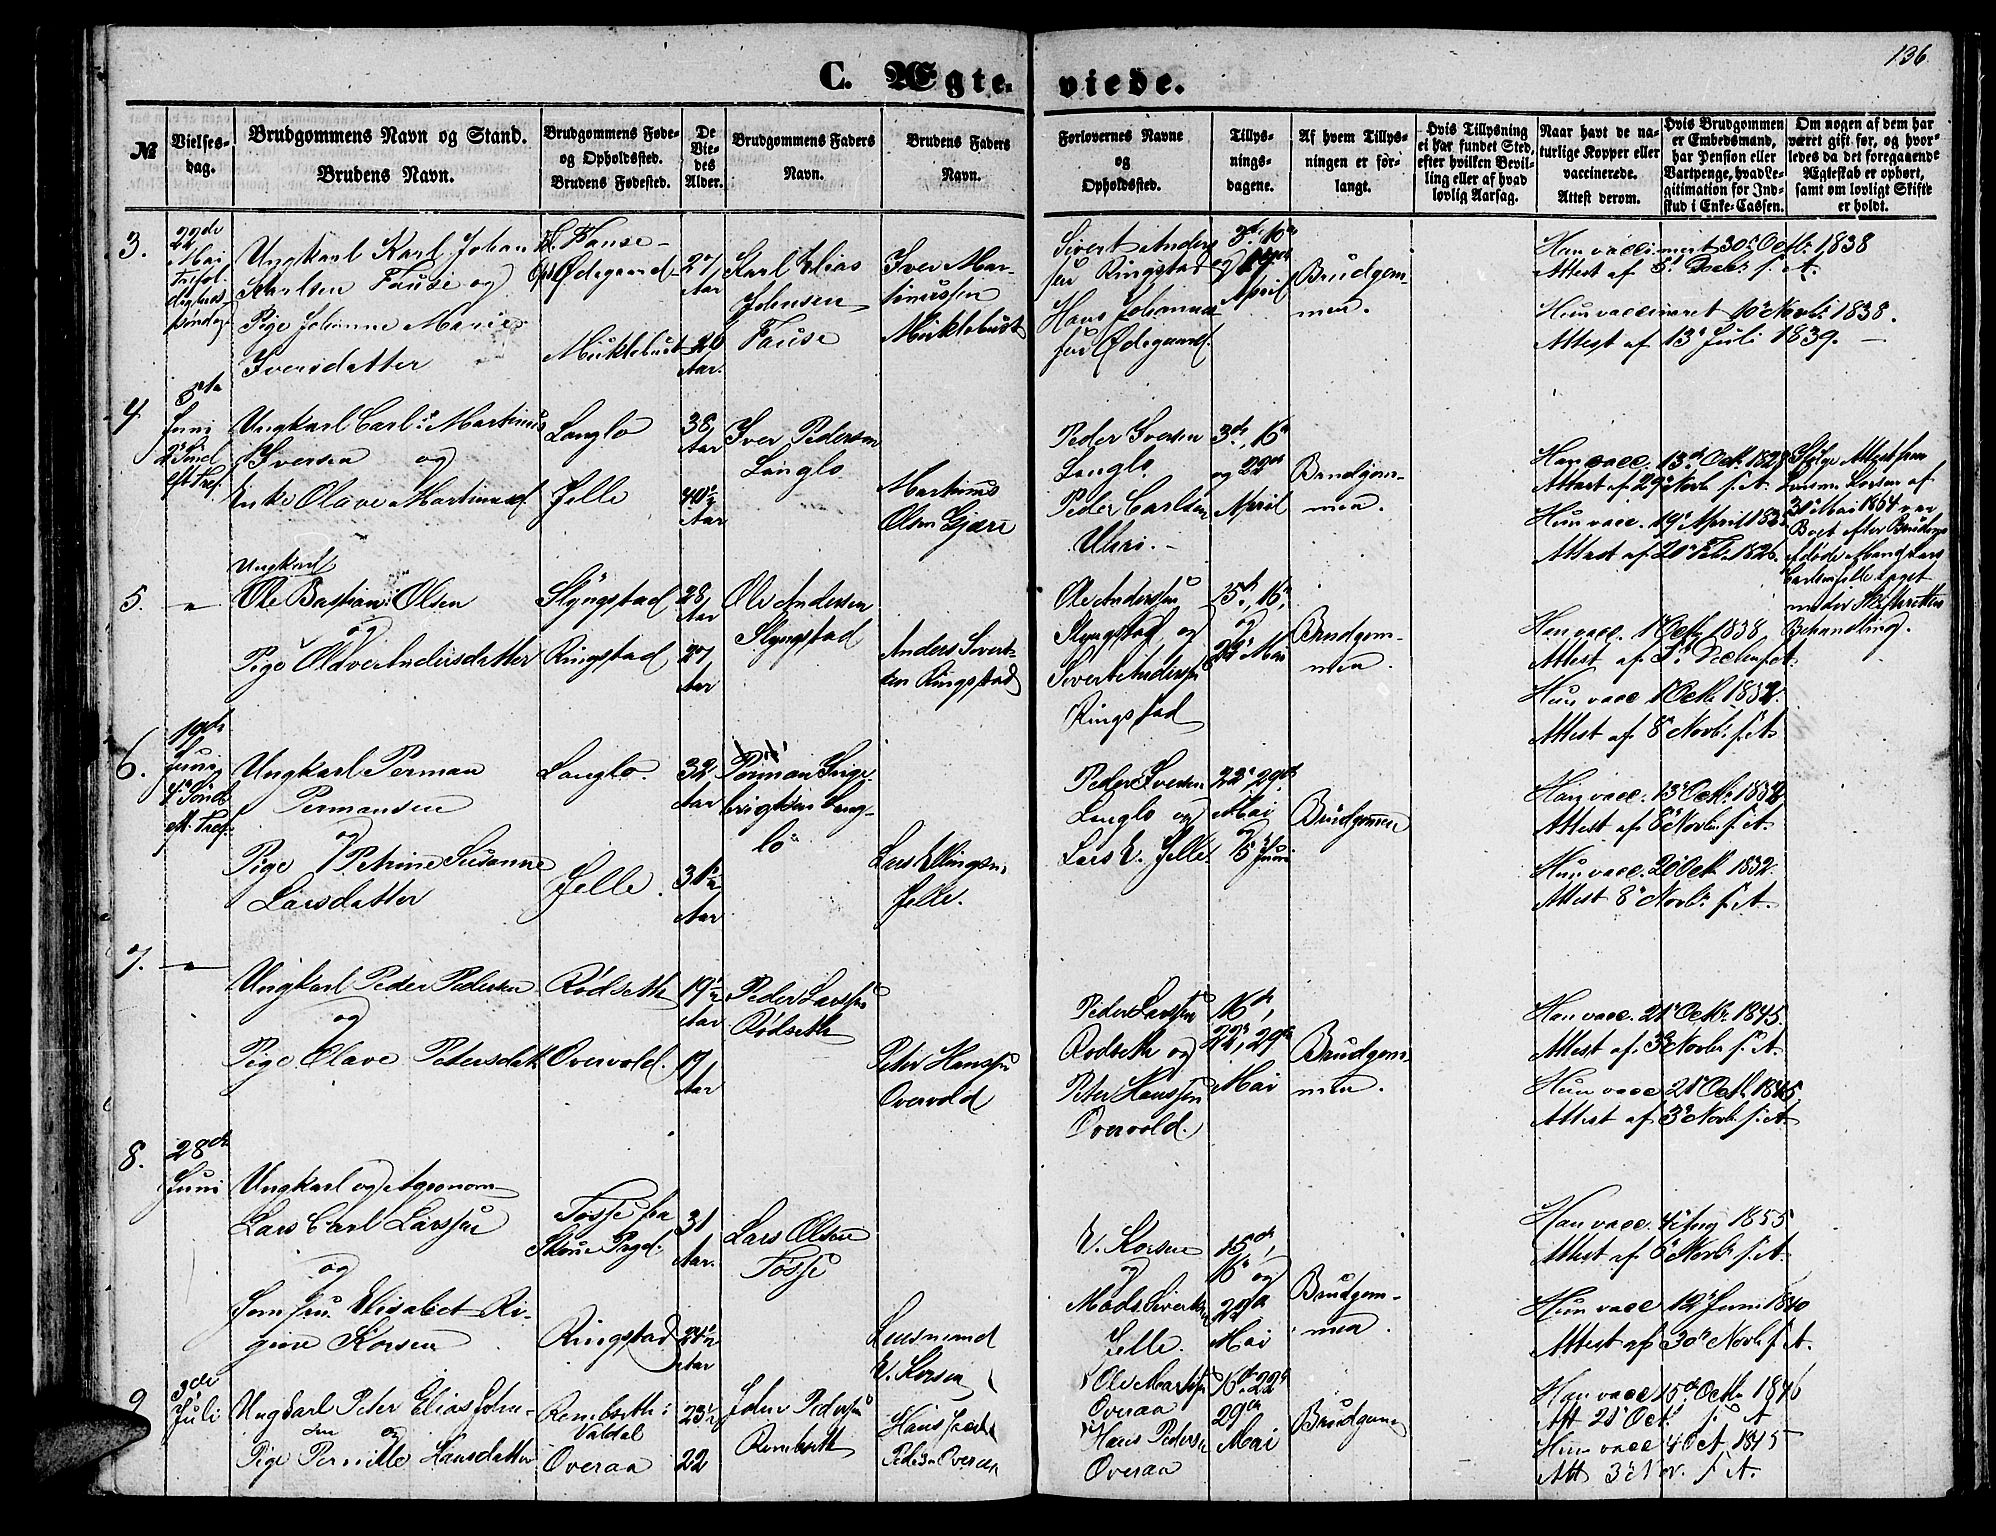 136
C. Ægte-viede.
№
Vielses-dag.
Brudgommens Navn og Stand.
Brudens Navn.
Brudgommens Føde- og Opholdssted.
Brudens Fødested.
De Viedes Alder.
Brudgommens Faders Navn.
Brudens Faders Navn.
Forlovernes Navne og Opholdssted.
Tillysningsdagene.
Af hvem Tillysningen er forlangt.
Hvis Tillysning ei har fundet Sted, efter hvilken Bevilling eller af hvad lovlig Aarsag.
Naar havt de naturlige Kopper eller vaccinerede.
Attest derom.
Hvis Brudgommen er Embedsmand, har Pension eller Vartpenge, hvad Legitimation for Indskud i Enke-Cassen.
Om nogen af dem har været gift før, og hvorledes da det foregaaende Ægteskab er ophørt, samt om lovligt Skifte er holdt.
3.
22de Mai
Ungkarl Karl Johan
Karlsen Fause og
Pige Johanne Marie
Iversdatter
Fause
Ødegaard
Müklebust
27 Aar
20 Aar.
Karl Elias
Johnsen
Fause
Iver Mar-
tinussen
Müklebust
Sivert Anders
sen Ringstad
Hans Johannes
sen Ødegaard.
April
Brudgom-
men.
Han vaccineret 30 Octb. 1838
Attest af 5 Decbr. s. A.
Hun vaccineret 10 Novbr. 1838.
Attest af 13 Juli 1839.
4.
5te Juni
Ungkarl Carl Martinus
Iversen og
Enke Olave Martinusd.
Langlo
Jelle
38 Aar
40½ Aar
Iver Pedersen
Langlo
Martinus
Olsen Gjære
Peder Iversen
Langlo
Peder Carlsen
Uhri.
3de, 16de
og 22de
April
Brudgom-
men.
Han vacc. 13de Octb.
Attest af 29 Novbr. s. A.
Hun vacc. 19 April
Attest af 20 Febr. 1826.
Ifølge Attest fra
Lensm. Korsen af
31 Mai 1864 var
Boet efter Brudens
afdøde Mand Lars
Carlsen Jelle taget
under Skifterettens
Behandling.
5.
Ungkarl
Ole Bastian Olsen
og
Pige Olave Andersdatter
Slyngstad
Ringstad
28 Aar
27 Aar
Ole Andersen
Slyngstad
Anders Sivert-
sen Ringstad
Ole Andersen
Slyngstad og
Sivert Andersen
Ringstad
15de, 16de
og
22 Mai
Brudgom-
men.
Han vacc. 1 Octb. 1838
Attest af 5 Decbr. s. A.
Hun vacc. 1 Octb. 1832.
Attest af 8 Novbr. s. A.
6.
19de Juni
Ungkarl Perman
Permansen
og
Pige Petrine Susanne
Larsdatter
Langlo.
Jelle.
32 Aar
31½ Aar
Perman Inge-
brigtsen Lang-
lo
Lars Ellingsen
Jelle.
Peder Iversen
Langlo og
Lars E. Jelle.
22, 29de
Mai
og
5 Juni
Brudgommen
Han vacc. 13 Octb. 1832
Attest af 8 Novbr. s. A.
Hun vacc. 2 Octb. 1832.
Attest 8 Novbr. s. A.
7.
Ungkarl Peder Pedersen
og
Pige Olave Petersdatt.
Rødseth
Overvold.
19½ Aar
17 Aar
Peder Larssen
Rødseth
Peter Hanssen
Overvold
Peder Larssen
Rødseth og
Peter Hanssen
Overvold.
16de,
22, 29de
Mai
Brudgom-
men.
Han vacc. 21 Octbr. 1845.
Attest af 3 Novbr. s. A.
Hun vacc. 21 Octb. 1845.
Attest af 3 Novbr. s. A.
8.
28de Juni
Ungkarl og Agronom
Lars Carl Larssen
og
Jomfru Elisabet Re-
gine Korsen
Fosse fra
Skoue Prgd.
Ringstad
31 Aar.
24½ Aar
Lars Olsen
Fosse
Lensmand
E. Korsen
E. Korsen
og
Mads Sivertsen
Jelle.
15de,
16 og
22de
Mai
Brudgom-
men.
Han vacc. 4 Aug 1855
Attest af 6 Novbr. s. A.
Hun vacc 12 Juni 1840
Attest af 30 Novbr. s. A.
9
3die Juli
Ungkarl Peter Elias John-
sen og
Pige Pernille Hansdatter
Rembseth i
Valdal
Overaa
23½
22
John Pedersen
Rembseth
Hans
Peders. Overaa
Ole Martin
Overaa
Hans Pedersen
Overaa
16de, 22de
29de
Mai
Brudgommen
Han vacc 15de Octbr 1846
Att 21 Oct. s. A
Hun vacc 4 Oct 1845
Att 3 Nov. s. A.